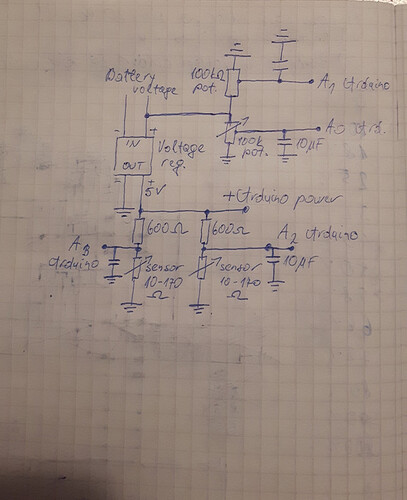 Battery
voltage
100kΩ
pot.
A1 Arduino
A0 Ard.
100k
pot.
10µF
- +
IN
OUT
- +
Voltage
reg.
5V
+Arduino power
600Ω
600Ω
A3
Arduino
A2 Arduino
sensor
10-170
Ω
sensor
10-170
Ω
10µF